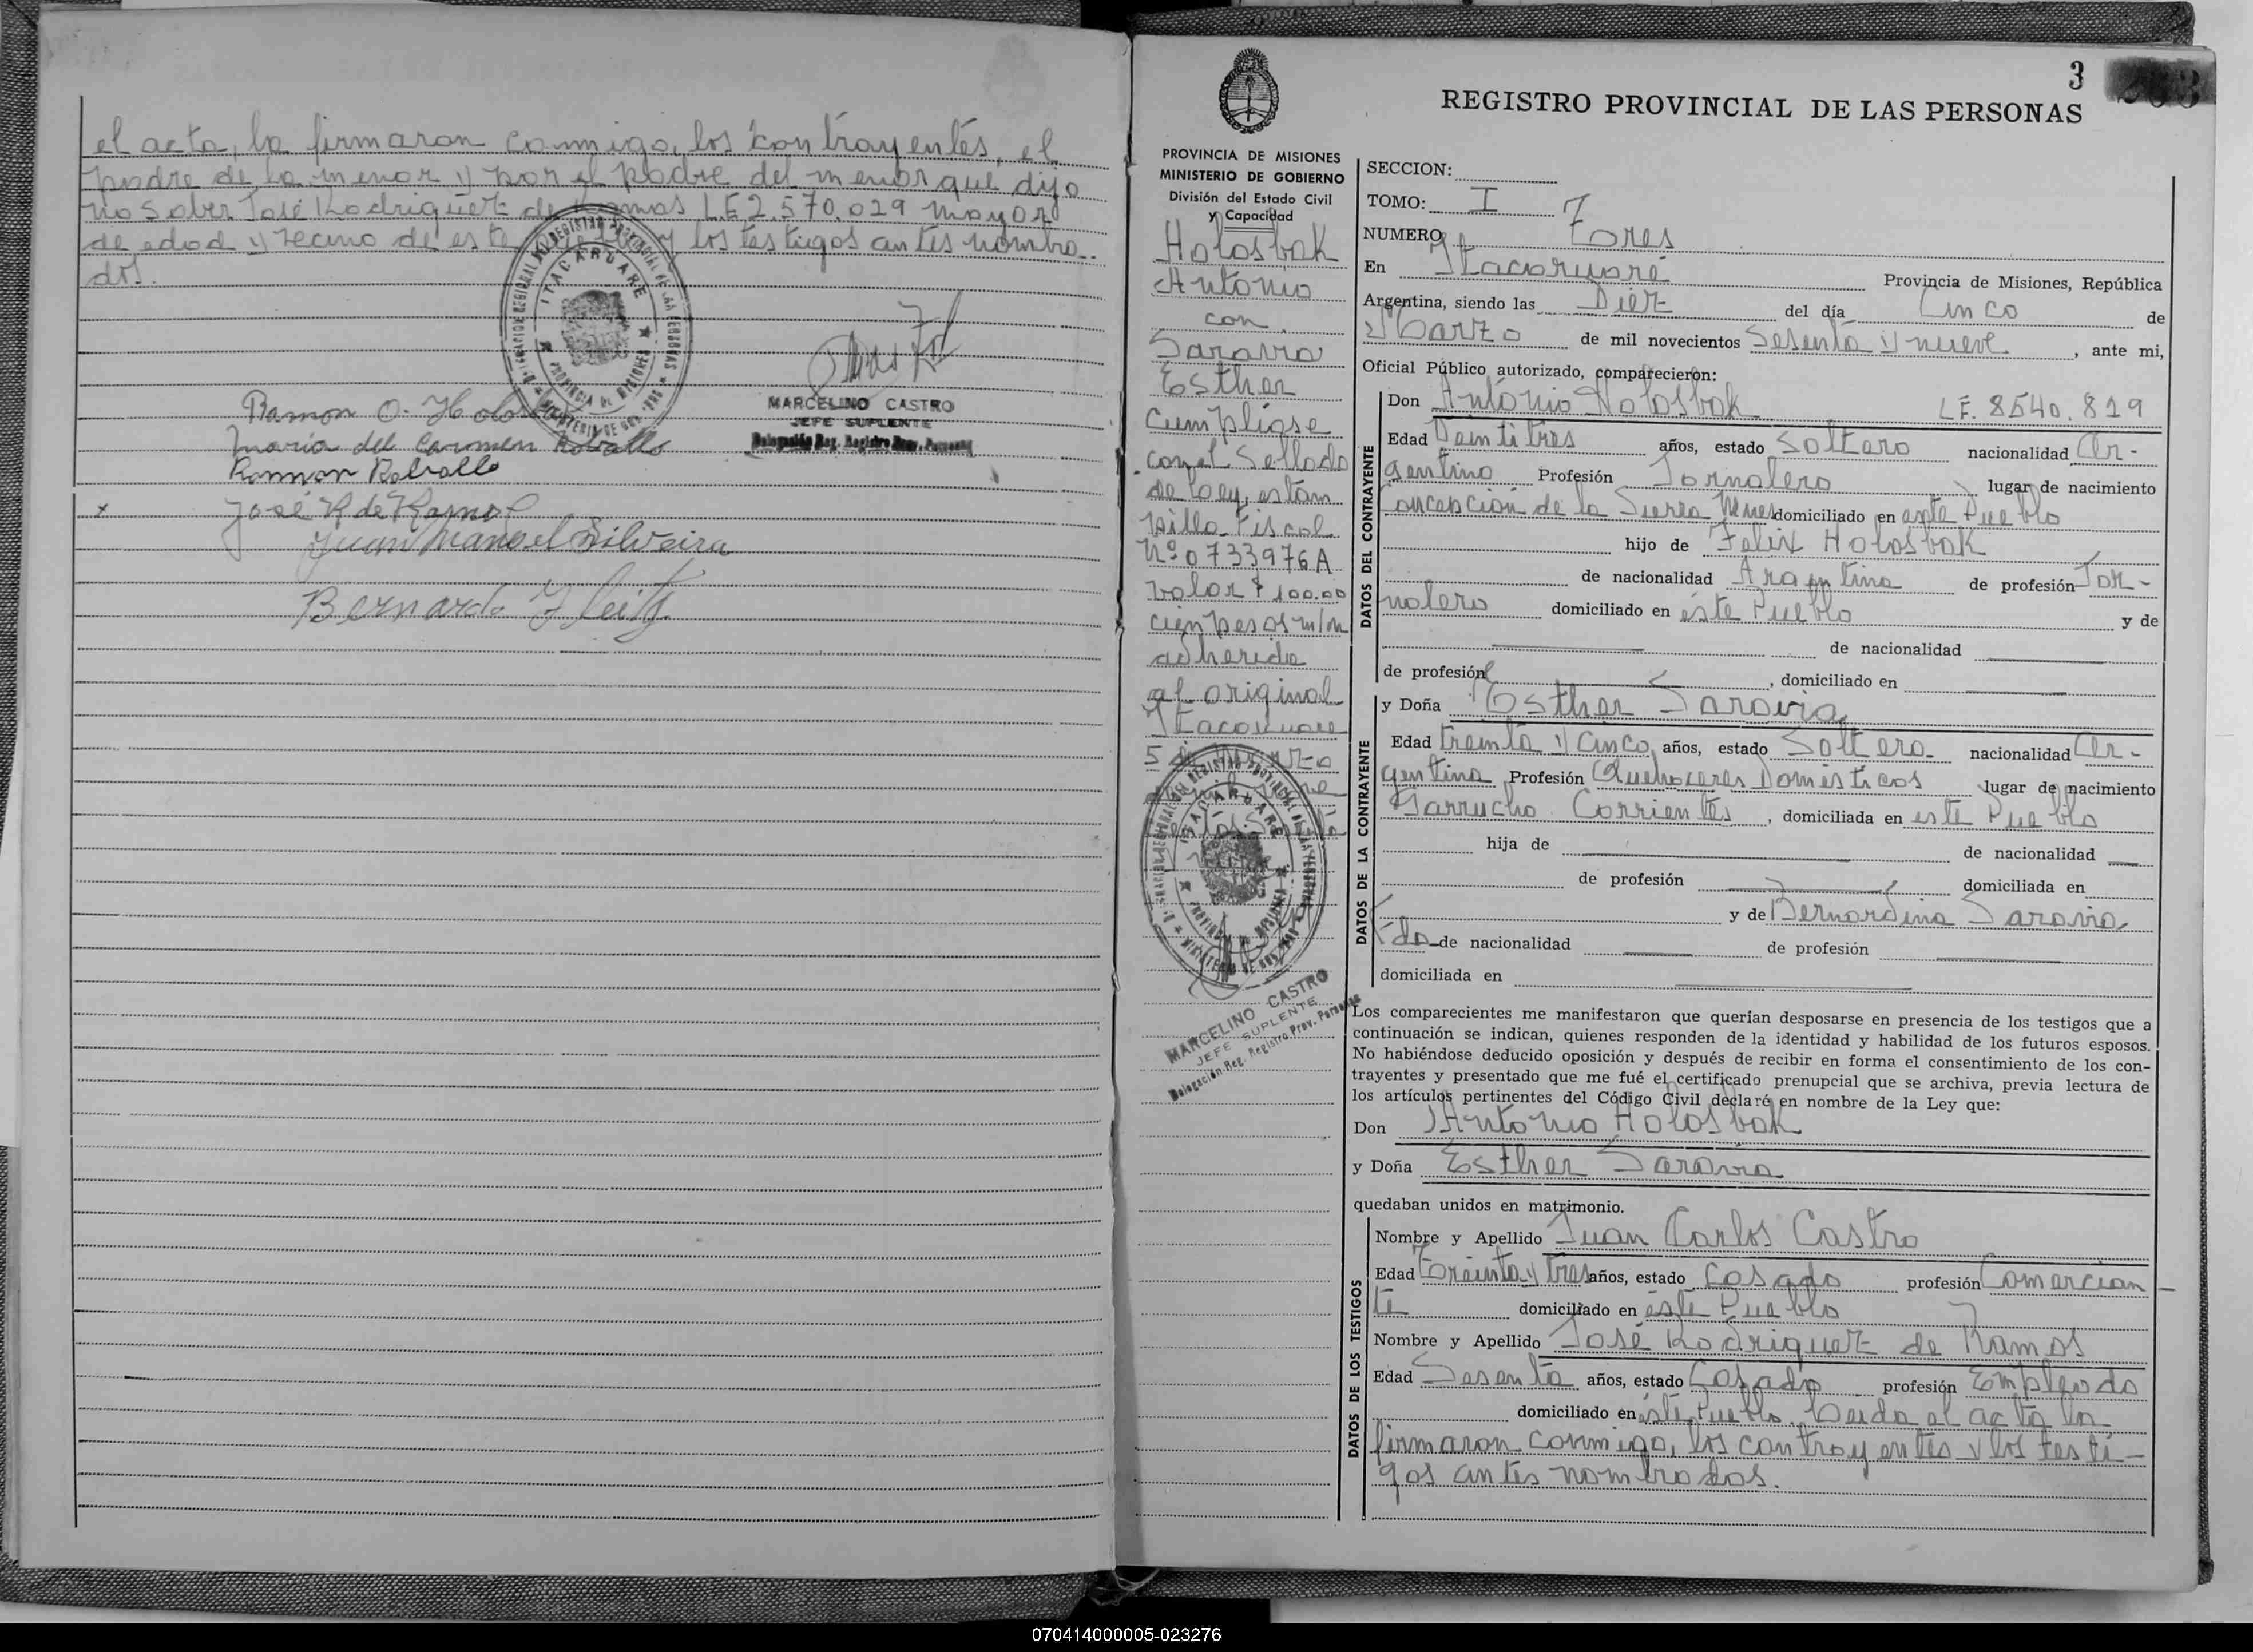 el acta, la firmaron conmigo, los contrayentes, el
padre de la menor y por el padre del menor que dijo
no saber José Rodriguez de Ramos L.E 2.570.029 mayor
de edad y vecino de este y los testigos antes nombra-
dos.
MARCELINO CASTRO
JEFE SUPLENTE
Delegación Reg. Registro Prov. Personas
Ramon O. Holos
Maria del Carmen Roballo
Ramon Roballo
x José R de Ramos
Juan Manoel Silveira
Bernardo
ITACARUARE
PROVINCIA DE MISIONES
3
REGISTRO PROVINCIAL DE LAS PERSONAS
PROVINCIA DE MISIONES
MINISTERIO DE GOBIERNO
División del Estado Civil
y Capacidad
Holosbak
Antonio
con
Saravia
Esther
Cumpliose
con el Sellado
de Ley, estam
pilla fiscal
Nº 0733976A
valor $ 100.00
cien pesos m/n
adherida
al original
Itacaruare
5 de Marzo
MARCELINO CASTRO
JEFE SUPLENTE
Delegación Reg. Registro Prov. Personas
SECCION:
TOMO: I
NUMERO Tres
En Itacaruaré Provincia de Misiones, República
Argentina, siendo las Diez del día Cinco de
Marzo de mil novecientos Sesenta y nueve, ante mi,
Oficial Público autorizado, comparecieron:
DATOS DEL CONTRAYENTE
Don Antonio Holosbak L.E. 8540.819
Edad Veintitres años, estado Soltero nacionalidad Ar-
gentino Profesión Jornalero lugar de nacimiento
Concepción de la Sierra Mnes domiciliado en este Pueblo
hijo de Felix Holosbak
de nacionalidad Argentina de profesión Jor-
nalero domiciliado en éste Pueblo y de
de nacionalidad
de profesión , domiciliado en
DATOS DE LA CONTRAYENTE
y Doña Esther Saravia
Edad treinta y cinco años, estado Soltera nacionalidad Ar-
gentina Profesión Quehaceres Domésticos lugar de nacimiento
Garruchos Corrientes, domiciliada en este Pueblo
hija de de nacionalidad
de profesión domiciliada en
y de Bernardina Saravia
Fda de nacionalidad de profesión
domiciliada en
Los comparecientes me manifestaron que querían desposarse en presencia de los testigos que a
continuación se indican, quienes responden de la identidad y habilidad de los futuros esposos.
No habiéndose deducido oposición y después de recibir en forma el consentimiento de los con-
trayentes y presentado que me fué el certificado prenupcial que se archiva, previa lectura de
los artículos pertinentes del Código Civil declaré en nombre de la Ley que:
Don Antonio Holosbak
y Doña Esther Saravia
quedaban unidos en matrimonio.
DATOS DE LOS TESTIGOS
Nombre y Apellido Juan Carlos Castro
Edad Treinta y tres años, estado Casado profesión Comercian-
te domiciliado en éste Pueblo
Nombre y Apellido José Rodriguez de Ramos
Edad Sesenta años, estado Casado profesión Empleado
domiciliado en éste Pueblo. Leida el acta la
firmaron conmigo, los contrayentes y los testi-
gos antes nombrados.
070414000005-023276